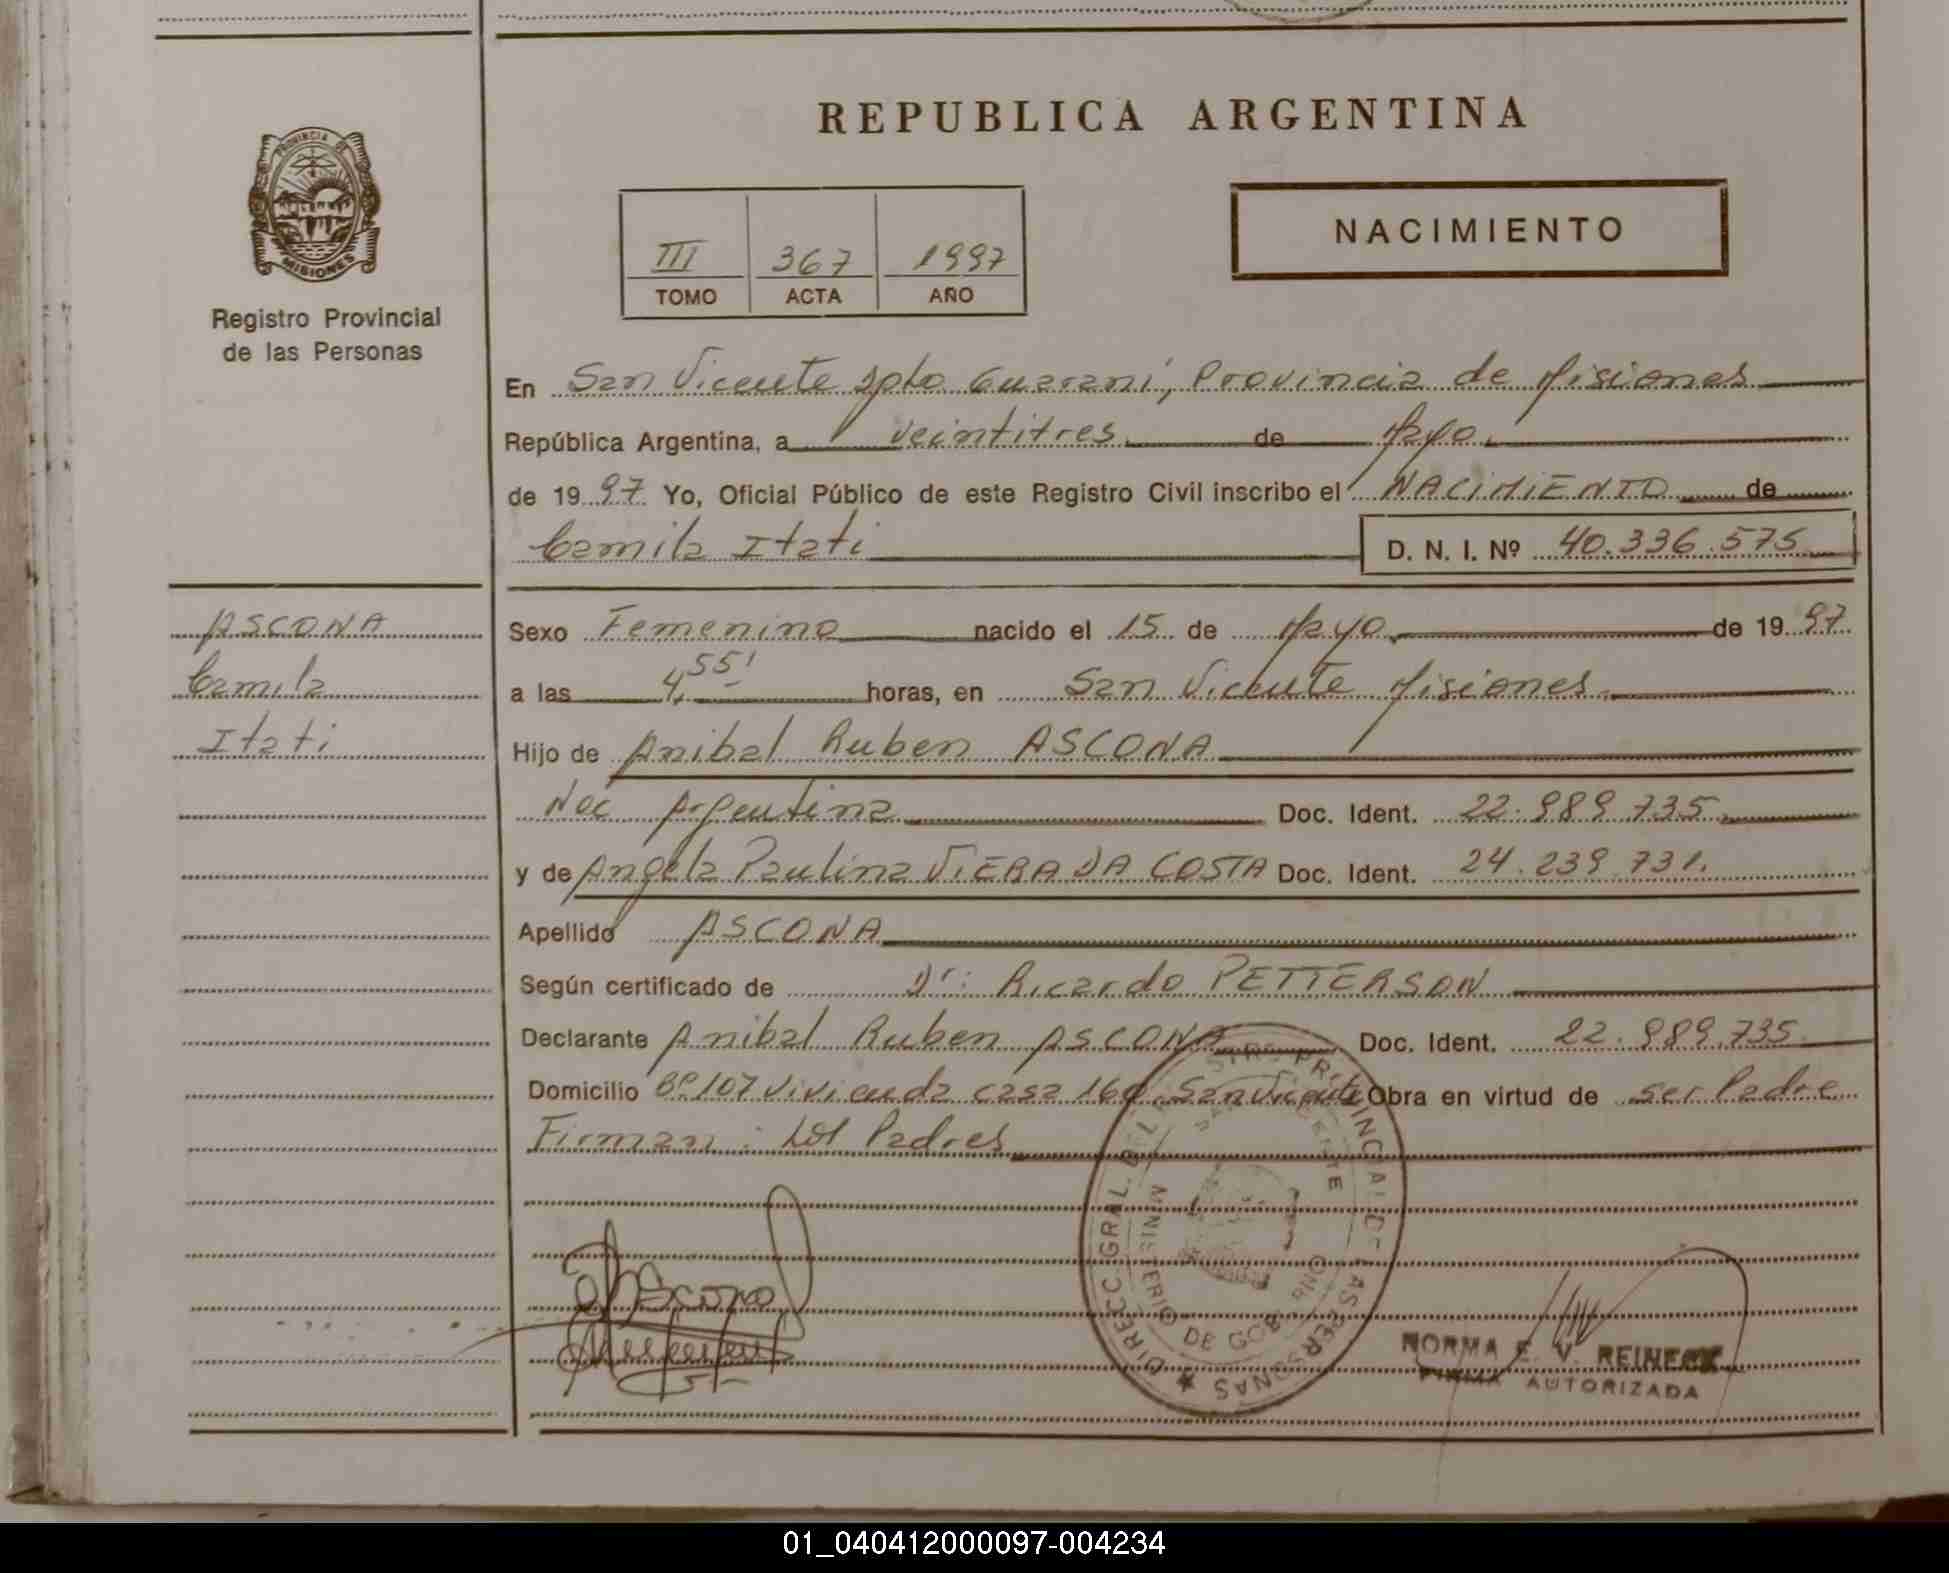 REPUBLICA ARGENTINA
PROVINCIA DE
MISIONES
Registro Provincial
de las Personas
III 367 1997
TOMO ACTA AÑO
NACIMIENTO
En San Vicente Dpto Guaraní, Provincia de Misiones
República Argentina, a veintitres de Mayo
de 1997 Yo, Oficial Público de este Registro Civil inscribo el NACIMIENTO de
Camila Itati D. N. I. Nº 40.336.575
ASCONA
Camila
Itati
Sexo Femenino nacido el 15 de Mayo de 1997
a las 4,55' horas, en San Vicente Misiones
Hijo de Anibal Ruben ASCONA
Nac Argentina Doc. Ident. 22.989.735
y de Angela Paulina VIERA DA COSTA Doc. Ident. 24.239.731.
Apellido ASCONA
Según certificado de Dr: Ricardo PETTERSON
Declarante Anibal Ruben ASCONA Doc. Ident. 22.989.735
Domicilio Bº 107 Vivienda casa 160 San Vicente Obra en virtud de ser Padre
Firman: los Padres
DIRECC. GRAL. DEL REGISTRO PROVINCIAL DE LAS PERSONAS
SAN VICENTE
MINISTERIO DE GOB.
NORMA E. V. REINECK
FIRMA AUTORIZADA
01_040412000097-004234